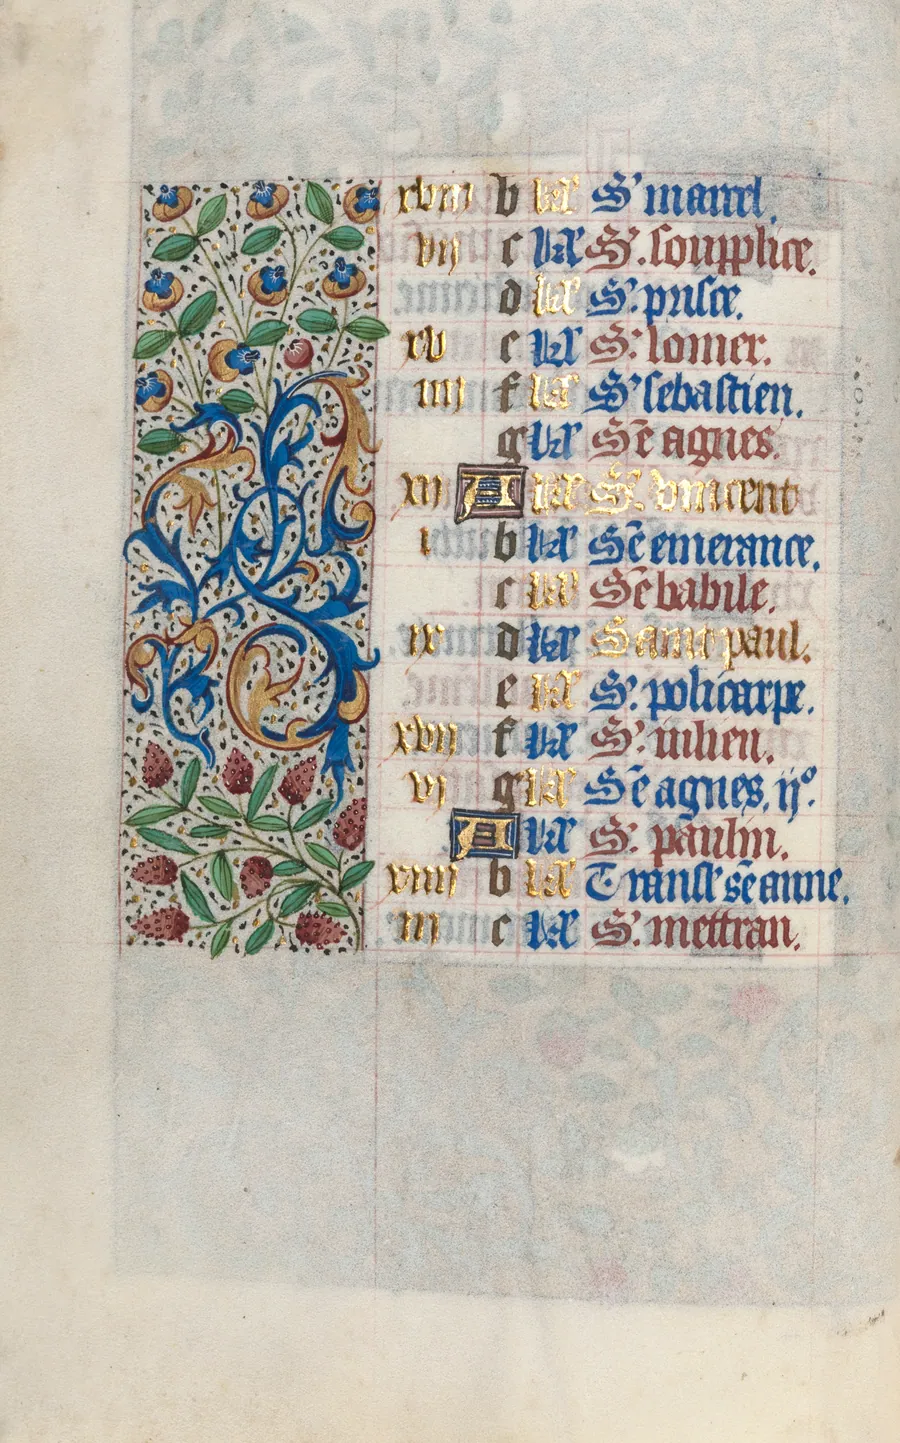 xviii b kƚ S' marcel.
vij c kƚ S'. soupplice.
d kƚ S'. prisce.
xv e kƚ S'. lomer.
iiij f kƚ S' sebastien.
g kƚ Sē agnes.
xij A kƚ S'. vincent
i b kƚ Sē emerance.
c kƚ Sē babile.
ix d kƚ Saint paul.
e kƚ S'. policarpe.
xvij f kƚ S'. iulien.
vj g kƚ Sē agnes. ijº.
A kƚ S'. paulin.
xiiij b kƚ Transl' sē anne.
iij c kƚ S'. mettran.